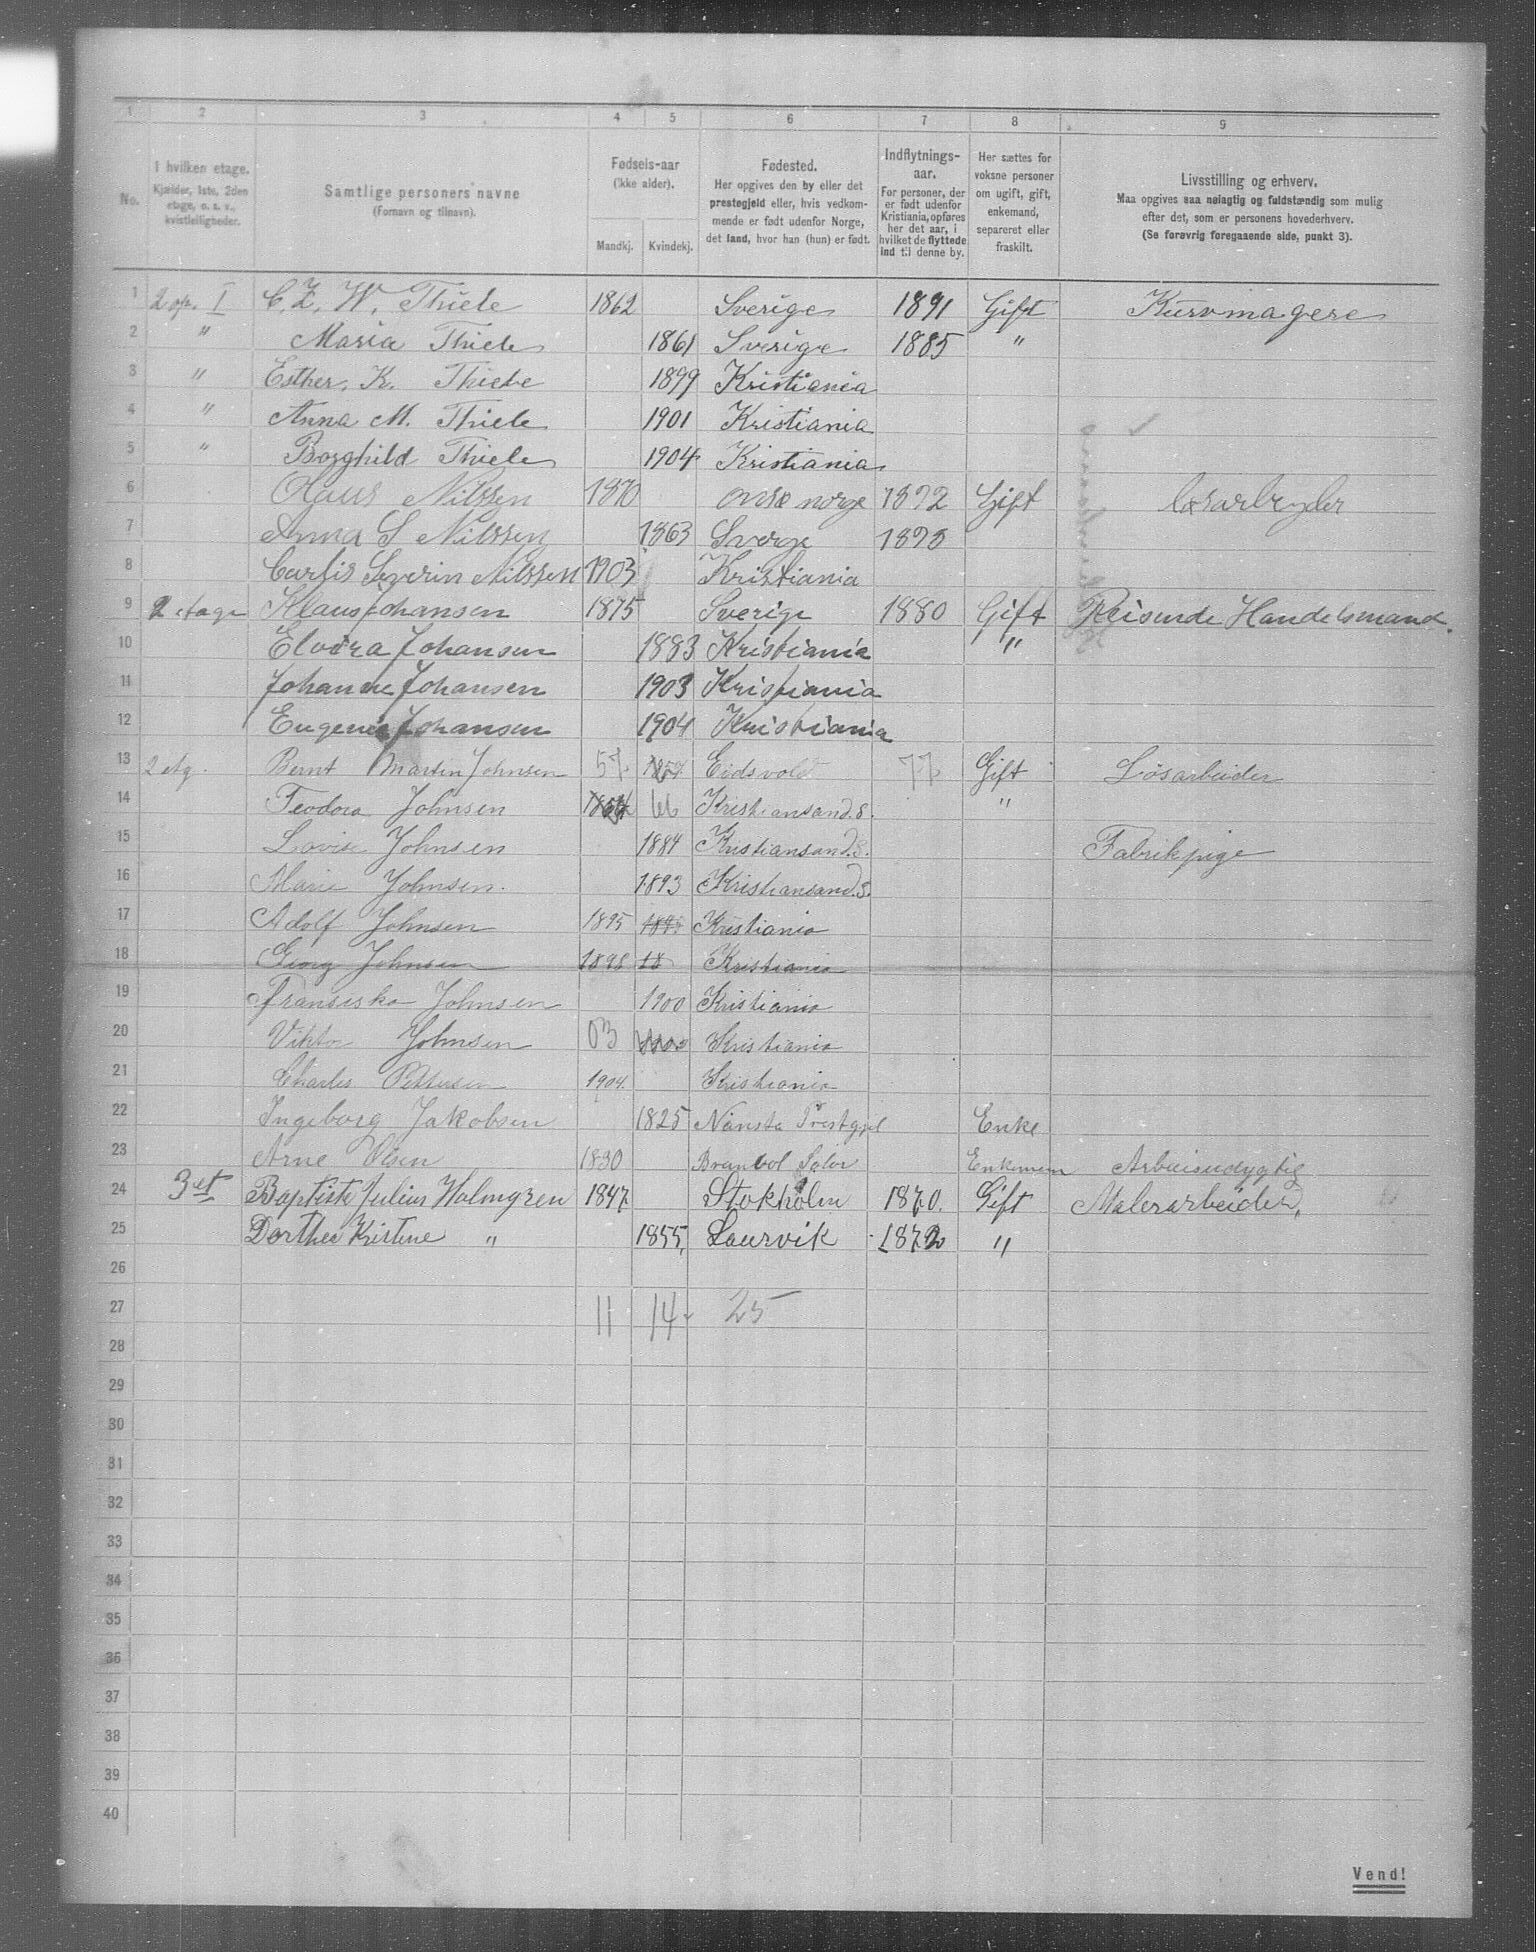 1 2 3 4 5 6 7 8 9
No. I hvilken etage. Kjælder, 1ste, 2den etage, o. s. v., kvistleiligheder. Samtlige personers navne (Fornavn og tilnavn). Fødsels-aar (ikke alder). Mandkj. Kvindekj. Fødested. Her opgives den by eller det prestegjeld eller, hvis vedkommende er født udenfor Norge, det land, hvor han (hun) er født. Indflytnings-aar. For personer, der er født udenfor Kristiania, opføres her det aar, i hvilket de flyttede ind til denne by. Her sættes for voksne personer om ugift, gift, enkemand, separeret eller fraskilt. Livsstilling og erhverv. Maa opgives saa nøiagtig og fuldstændig som mulig efter det, som er personens hovederhverv. (Se forøvrig foregaaende side, punkt 3).
1 2 op. I C. Z. W. Thiele 1862 Sverige 1891 Gift Kurvmagere
2 " Maria Thiele 1861 Sverige 1885 "
3 " Esther. K. Thiele 1899 Kristiania
4 " Anna M. Thiele 1901 Kristiania
5 " Borghild Thiele 1904 Kristiania
6 Olaus Nilssen 1870 norge 1892 Gift
7 Anna S Nilssen 1863 Sverge 1895
8 Carlis Severin Nilssen 1903 Kristiania
9 2 etage Klaus Johansen 1875 Sverige 1880 Gift Reisende Handelsmand.
10 Elvira Johansen 1883 Kristiania "
11 Johanne Johansen 1903 Kristiania
12 Eugenie Johansen 1904 Kristiania
13 2 etg. Bernt Martin Johnsen 57 Eidsvold 77 Gift Løsarbeider
14 Teodora Johnsen 1864 66 Kristiansand. S. "
15 Lovise Johnsen 1884 Kristiansand. S. Fabrikpige
16 Marie Johnsen. 1893 Kristiansand. S.
17 Adolf Johnsen 1895 Kristiania
18 Georg Johnsen 1898 18 Kristiania
19 Fransiska Johnsen 1900 Kristiania
20 Viktor Johnsen 03 Kristiania
21 Charles Pettersen 1904. Kristiania
22 Ingeborg Jakobsen 1825 Nansta Prestgjel Enke
23 Arne Olsen 1830 Branvol Solør Enkemen Arbeisudygtig
24 3 et Baptiste Julius Holmgren 1847 Stokholm 1870. Gift Malerarbeider,
25 Dorthea Kristine " 1855, Laurvik 1872 "
26
27 11 14 25
28
29
30
31
32
33
34
35
36
37
38
39
40
Vend!